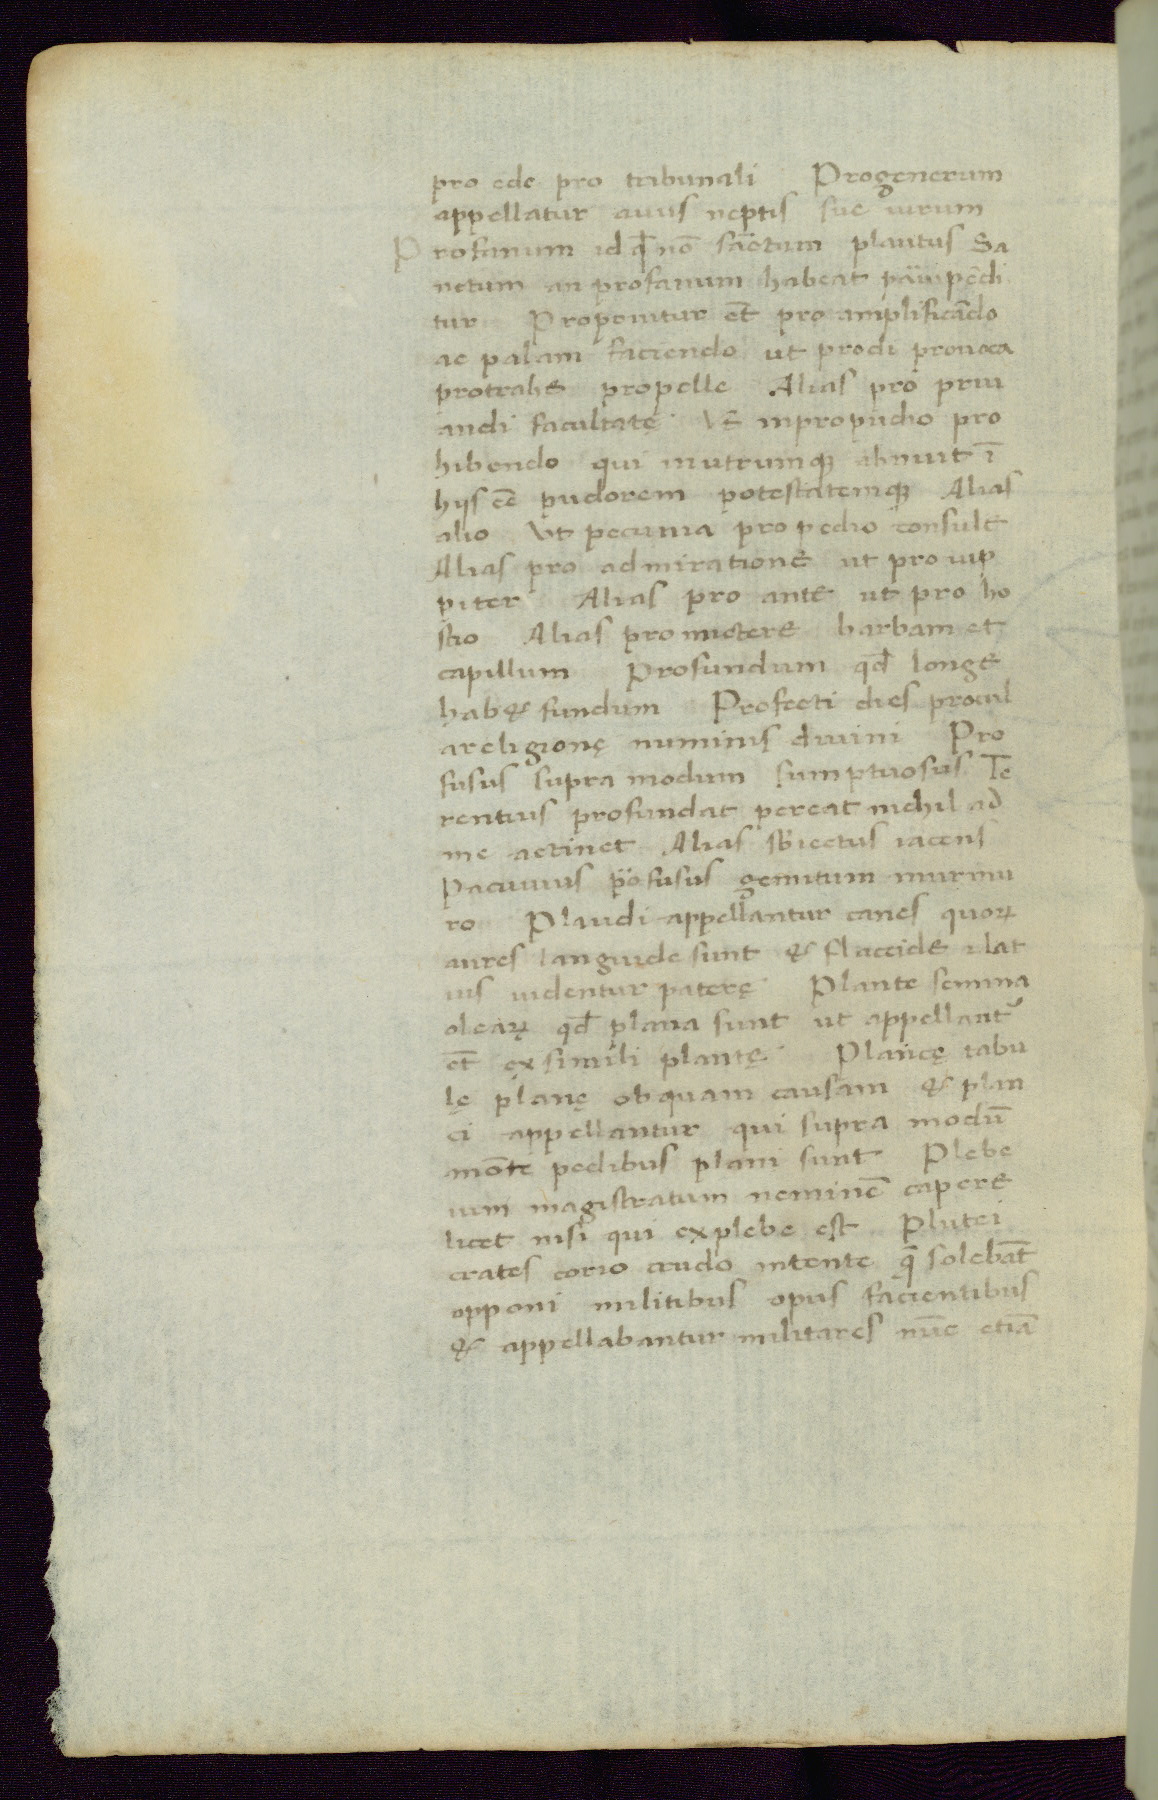 pro ede pro tribunali Progenerum
appellatur auus neptis sue uirum
Profanum id q̄ nō sāctum plautus Sa
nctum an profanum habeat paruipēdi
tur Proponitur et̄ pro amplificādo
ac palam faciendo ut prodi prouoca
protrahe propelle Alias pro priu
andi facultatę Vt inpropudio pro
hibendo qui inutrumqꝫ abnuit ī
hijs eē pudorem potestatemqꝫ Alias
alio Vt pecunia propedio consule
Alias pro admiratione ut pro iup
piter Alias pro ante ut pro ho
stio Alias promictere barbam et
capillum Profundum qđ longe
hab& fundum Profecti dies procul
areligionę numinis diuini Pro
fusus supra modum sumptuosus Te
rentius profundat pereat nichil ad
me actinet Alias sƀiectus iacens
Pacuuius profusus gemitum murmu
ro Plaudi appellantur canes quoꝝ
aures languide sunt & flaccide ulat
ius uidentur paterę Plante semina
oleaꝝ qđ plana sunt ut appellant᷑
et̄ ex simili plantę Plancę tabu
lę planę obquam causam & plan
ci appellantur qui supra modū
mōte pedibus plani sunt Plebe
ium magistratum neminē capere
licet nisi qui explebe est Plutei
crates corio crudo intente q̄ solebāt
opponi militibus opus facientibus
& appellabantur militares nūc etiā